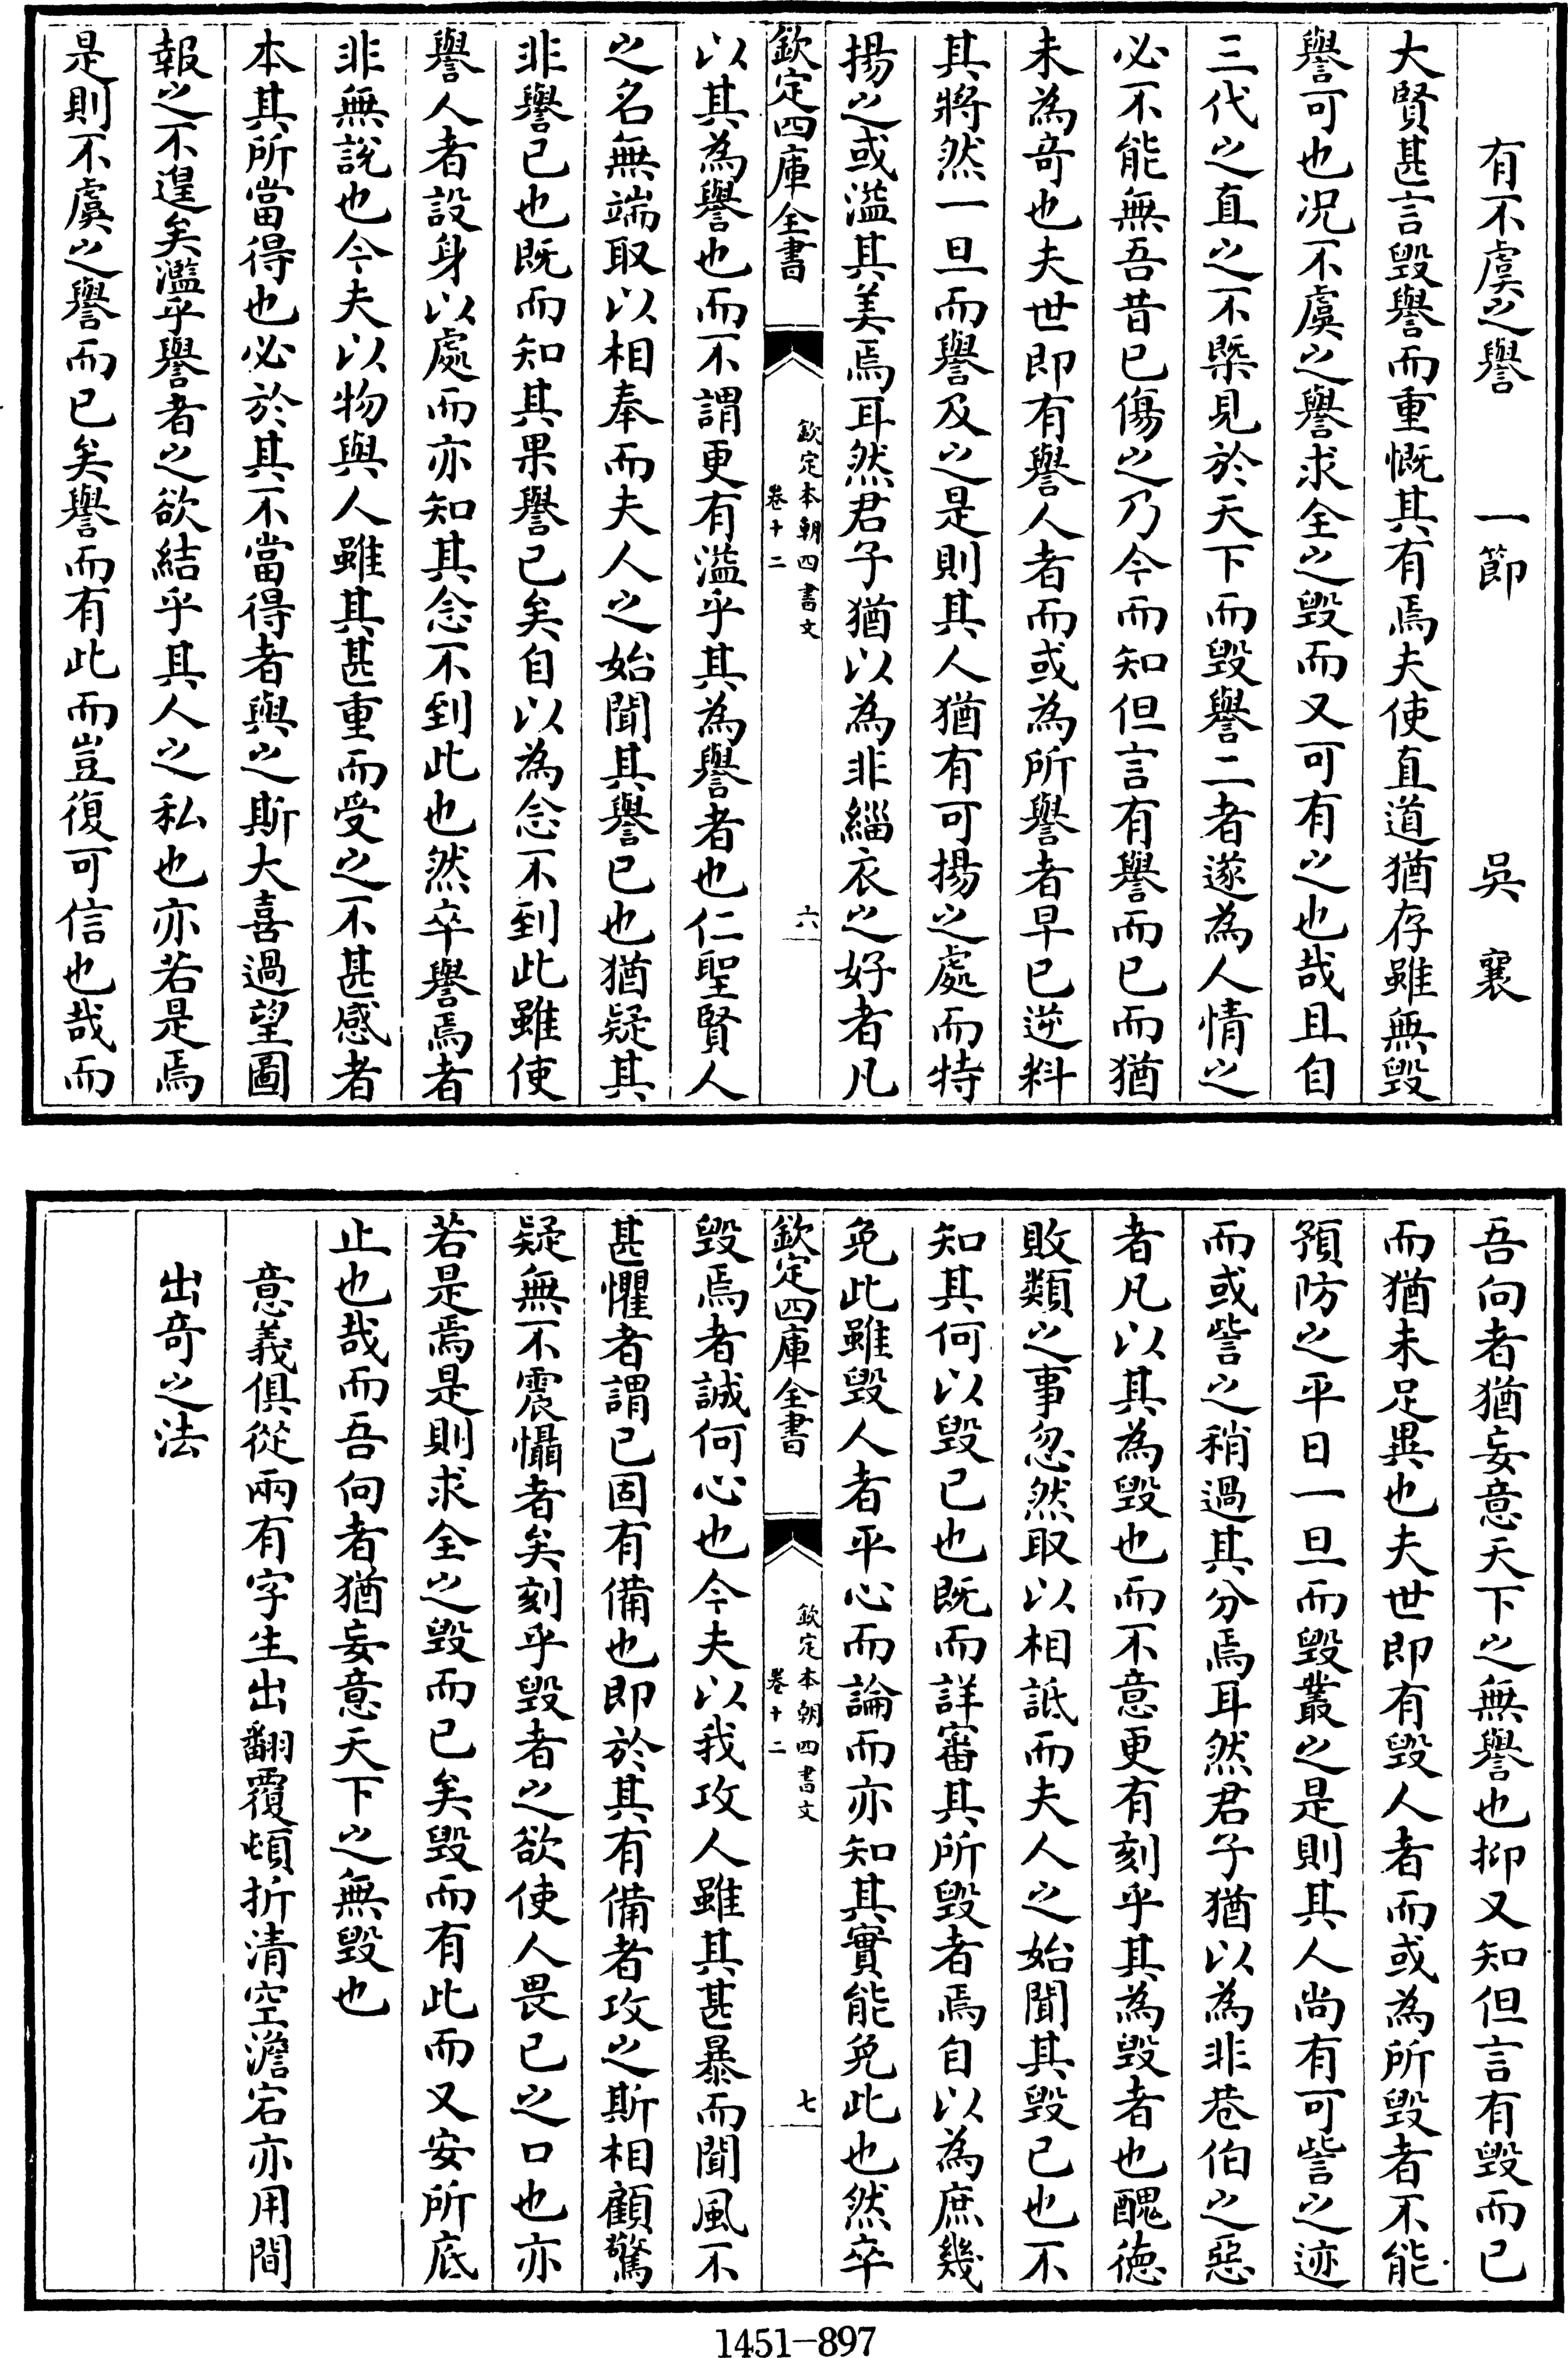 有不虞之譽　一節　吳襄
大賢甚言毀譽而重慨其有焉夫使直道猶存雖無毀
譽可也況不虞之譽求全之毀而又可有之也哉且自
三代之直之不槩見於天下而毀譽二者遂為人情之
必不能無吾昔已傷之乃今而知但言有譽而已而猶
未為奇也夫世即有譽人者而或為所譽者早已逆料
其將然一旦而譽及之是則其人猶有可揚之處而特
揚之或溢其美焉耳然君子猶以為非緇衣之好者凡
欽定四庫全書
欽定本朝四書文
卷十二
六
以其為譽也而不謂更有溢乎其為譽者也仁聖賢人
之名無端取以相奉而夫人之始聞其譽已也猶疑其
非譽已也既而知其果譽已矣自以為念不到此雖使
譽人者設身以處而亦知其念不到此也然卒譽焉者
非無說也今夫以物與人雖其甚重而受之不甚感者
本其所當得也必於其不當得者與之斯大喜過望圖
報之不遑矣濫乎譽者之欲結乎其人之私也亦若是焉
是則不虞之譽而已矣譽而有此而豈復可信也哉而
吾向者猶妄意天下之無譽也抑又知但言有毀而已
而猶未足異也夫世即有毀人者而或為所毀者不能
預防之平日一旦而毀叢之是則其人尚有可訾之迹
而或訾之稍過其分焉耳然君子猶以為非巷伯之惡
者凡以其為毀也而不意更有刻乎其為毀者也醜徳
敗類之事忽然取以相詆而夫人之始聞其毀已也不
知其何以毀已也既而詳審其所毀者焉自以為庶幾
免此雖毀人者平心而論而亦知其實能免此也然卒
欽定四庫全書
欽定本朝四書文
卷十二
七
毀焉者誠何心也今夫以我攻人雖其甚暴而聞風不
甚懼者謂已固有備也即於其有備者攻之斯相顧驚
疑無不震懾者矣刻乎毀者之欲使人畏已之口也亦
若是焉是則求全之毀而已矣毀而有此而又安所底
止也哉而吾向者猶妄意天下之無毀也
意義俱從兩有字生出翻覆頓折清空澹宕亦用間
出奇之法
1451-897